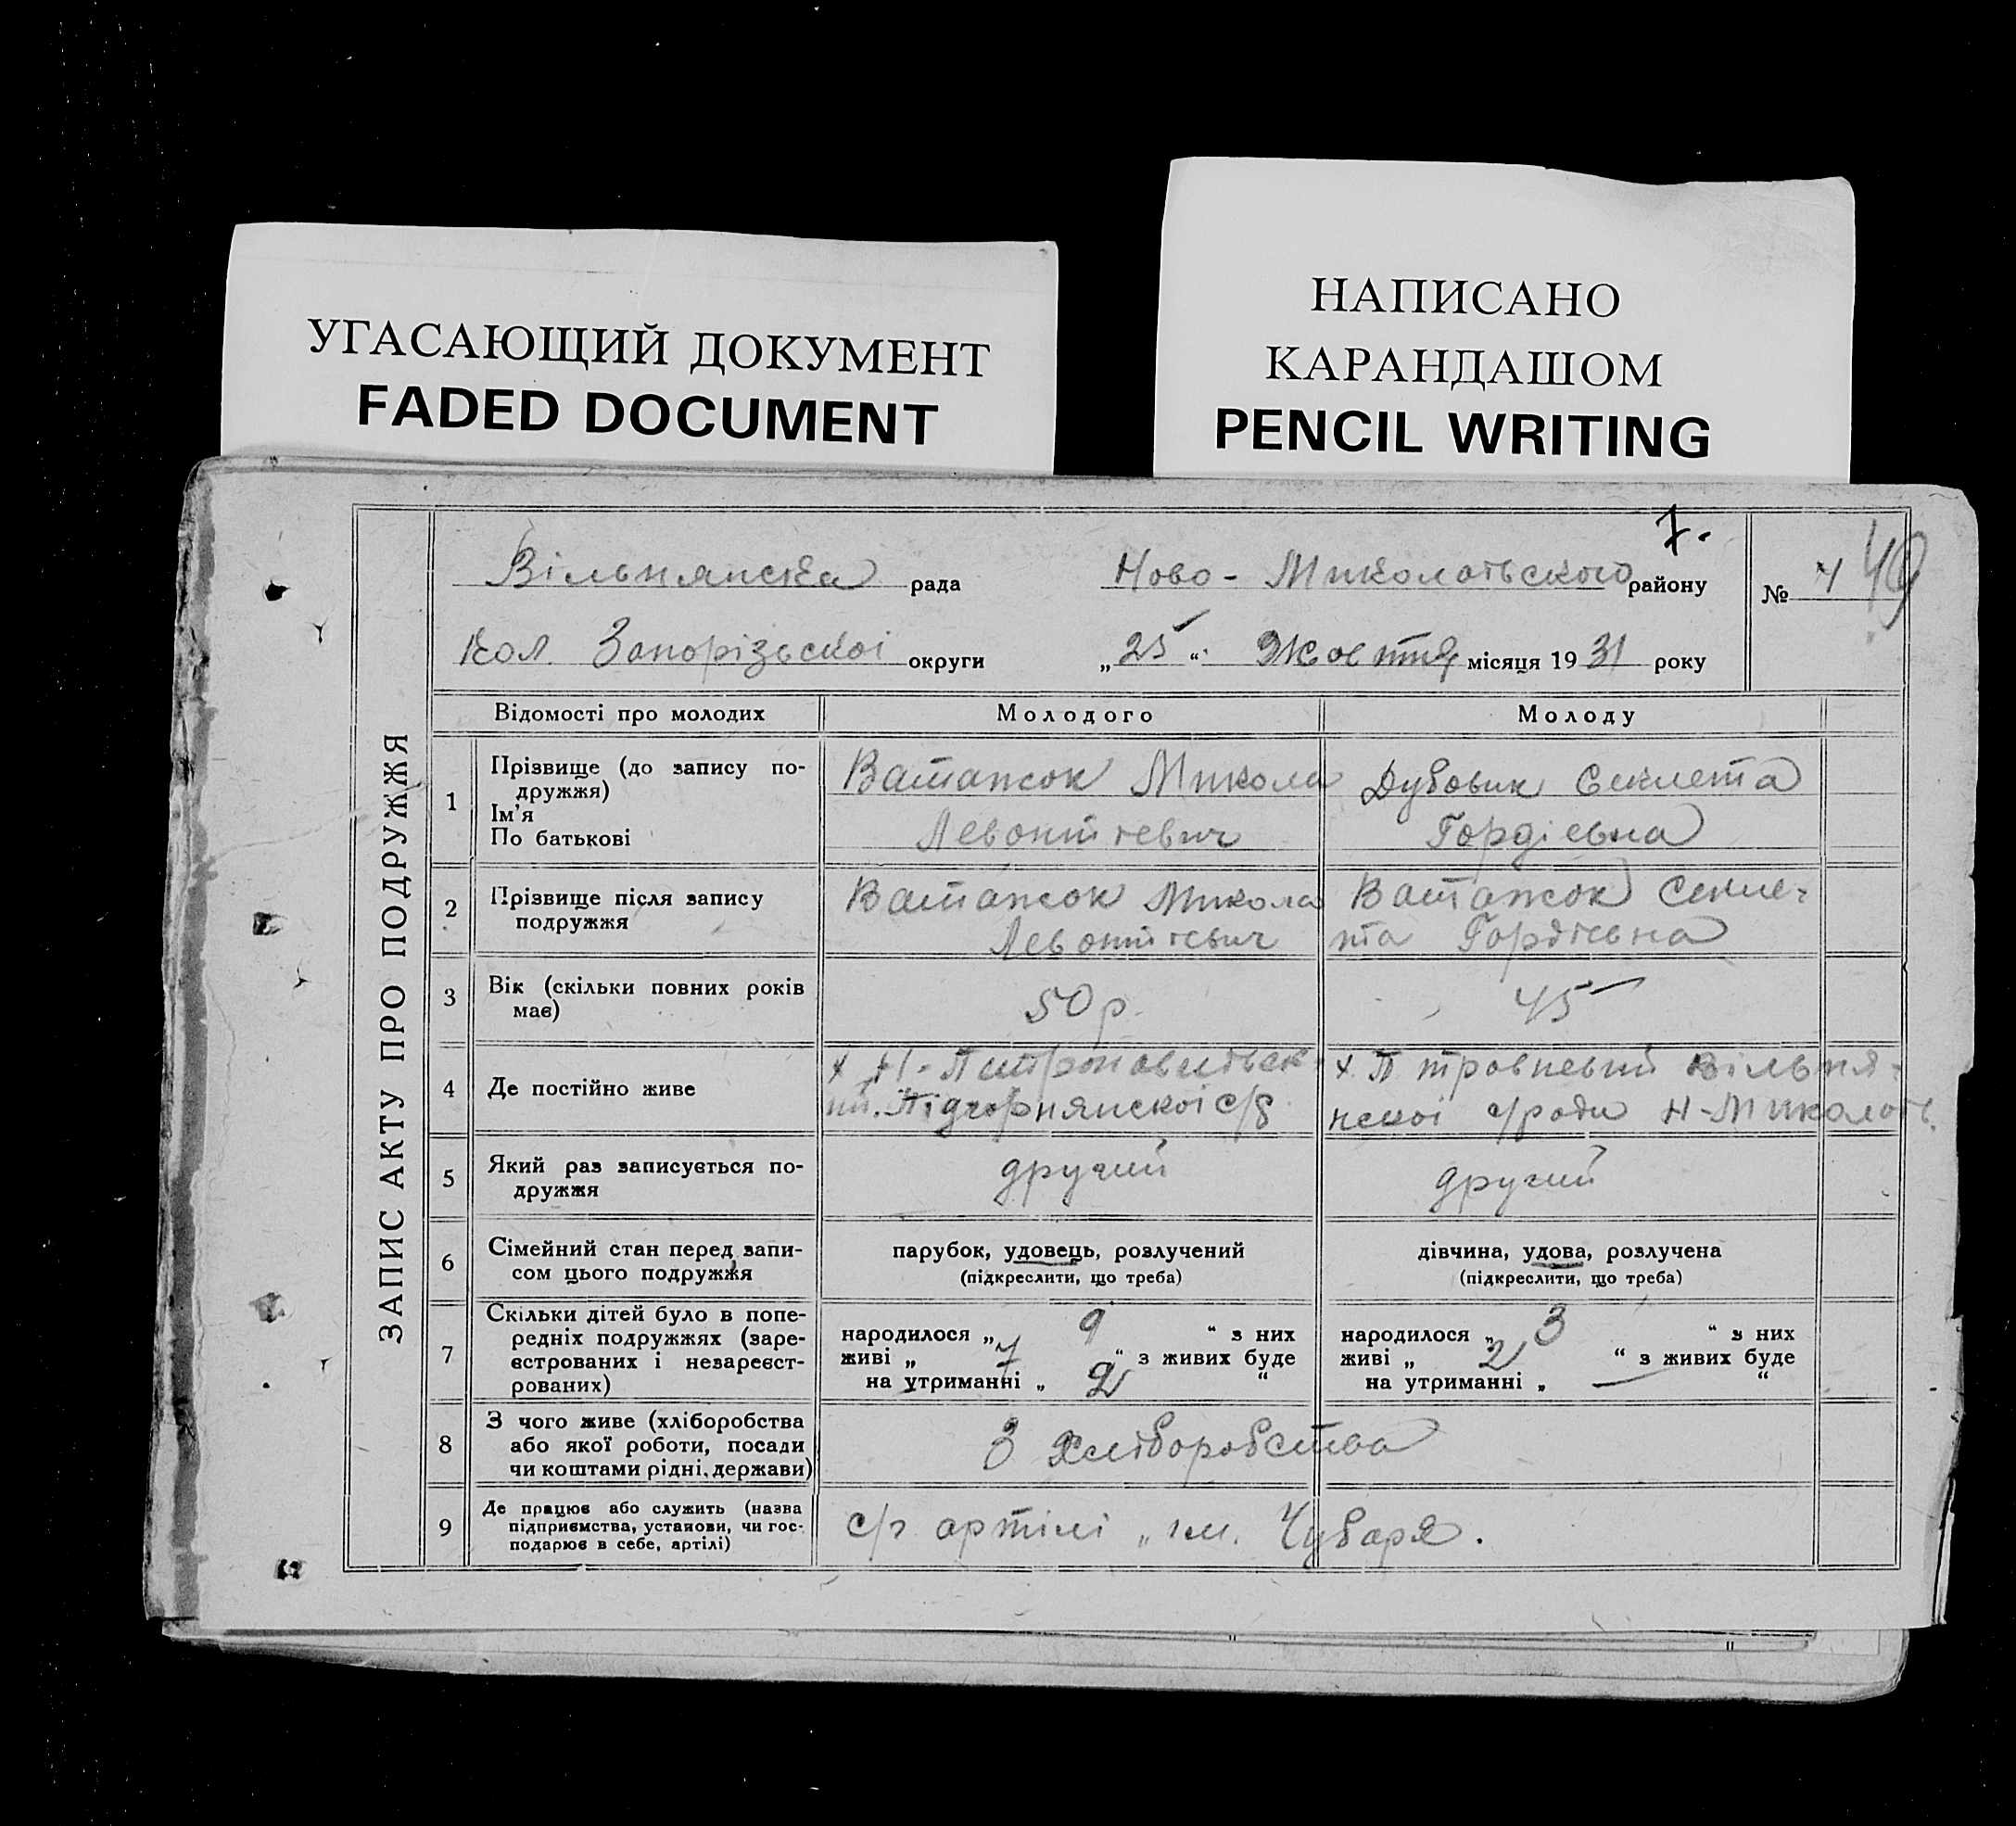 УГАСАЮЩИЙ ДОКУМЕНТ
FADED DOCUMENT
НАПИСАНО
КАРАНДАШОМ
PENCIL WRITING
7.
Вільнянська рада Ново-Миколаївського району № 4 49
кол. Запорізської округи „25“ Жовтня місяця 1931 року
ЗАПИС АКТУ ПРО ПОДРУЖЖЯ
Відомості про молодих Молодого Молоду
1 Прізвище (до запису по-
дружжя)
Ім'я
По батькові
Ватажок Микола
Левонтієвич
Дубовик Секлета
Гордіевна
2 Прізвище після запису
подружжя
Ватажок Микола
Левонтієвич
Ватажок Секле-
та Гордіевна
3 Вік (скільки повних років
має)
50 р.
45
4 Де постійно живе
Підгорнянскоі с/р
Вільня-
нскоі с/ради Н-Миколаїв.
5 Який раз записується по-
дружжя
другий
другий
6 Сімейний стан перед запи-
сом цього подружжя
парубок, удовець, розлучений
(підкреслити, що треба)
дівчина, удова, розлучена
(підкреслити, що треба)
7 Скільки дітей було в попе-
редніх подружжях (заре-
єстрованих і незареєст-
рованих)
народилося „ 9 “ з них
живі „ 7 “ з живих буде
на утриманні „ 2 “
народилося „ 3 “ з них
живі „ 2 “ з живих буде
на утриманні „ — “
8 З чого живе (хліборобства
або якої роботи, посади
чи коштами рідні, держави)
З Хліборобства
9 Де працює або служить (назва
підприємства, установи, чи гос-
подарює в себе, артілі)
с/г артілі „ім. Чубаря.